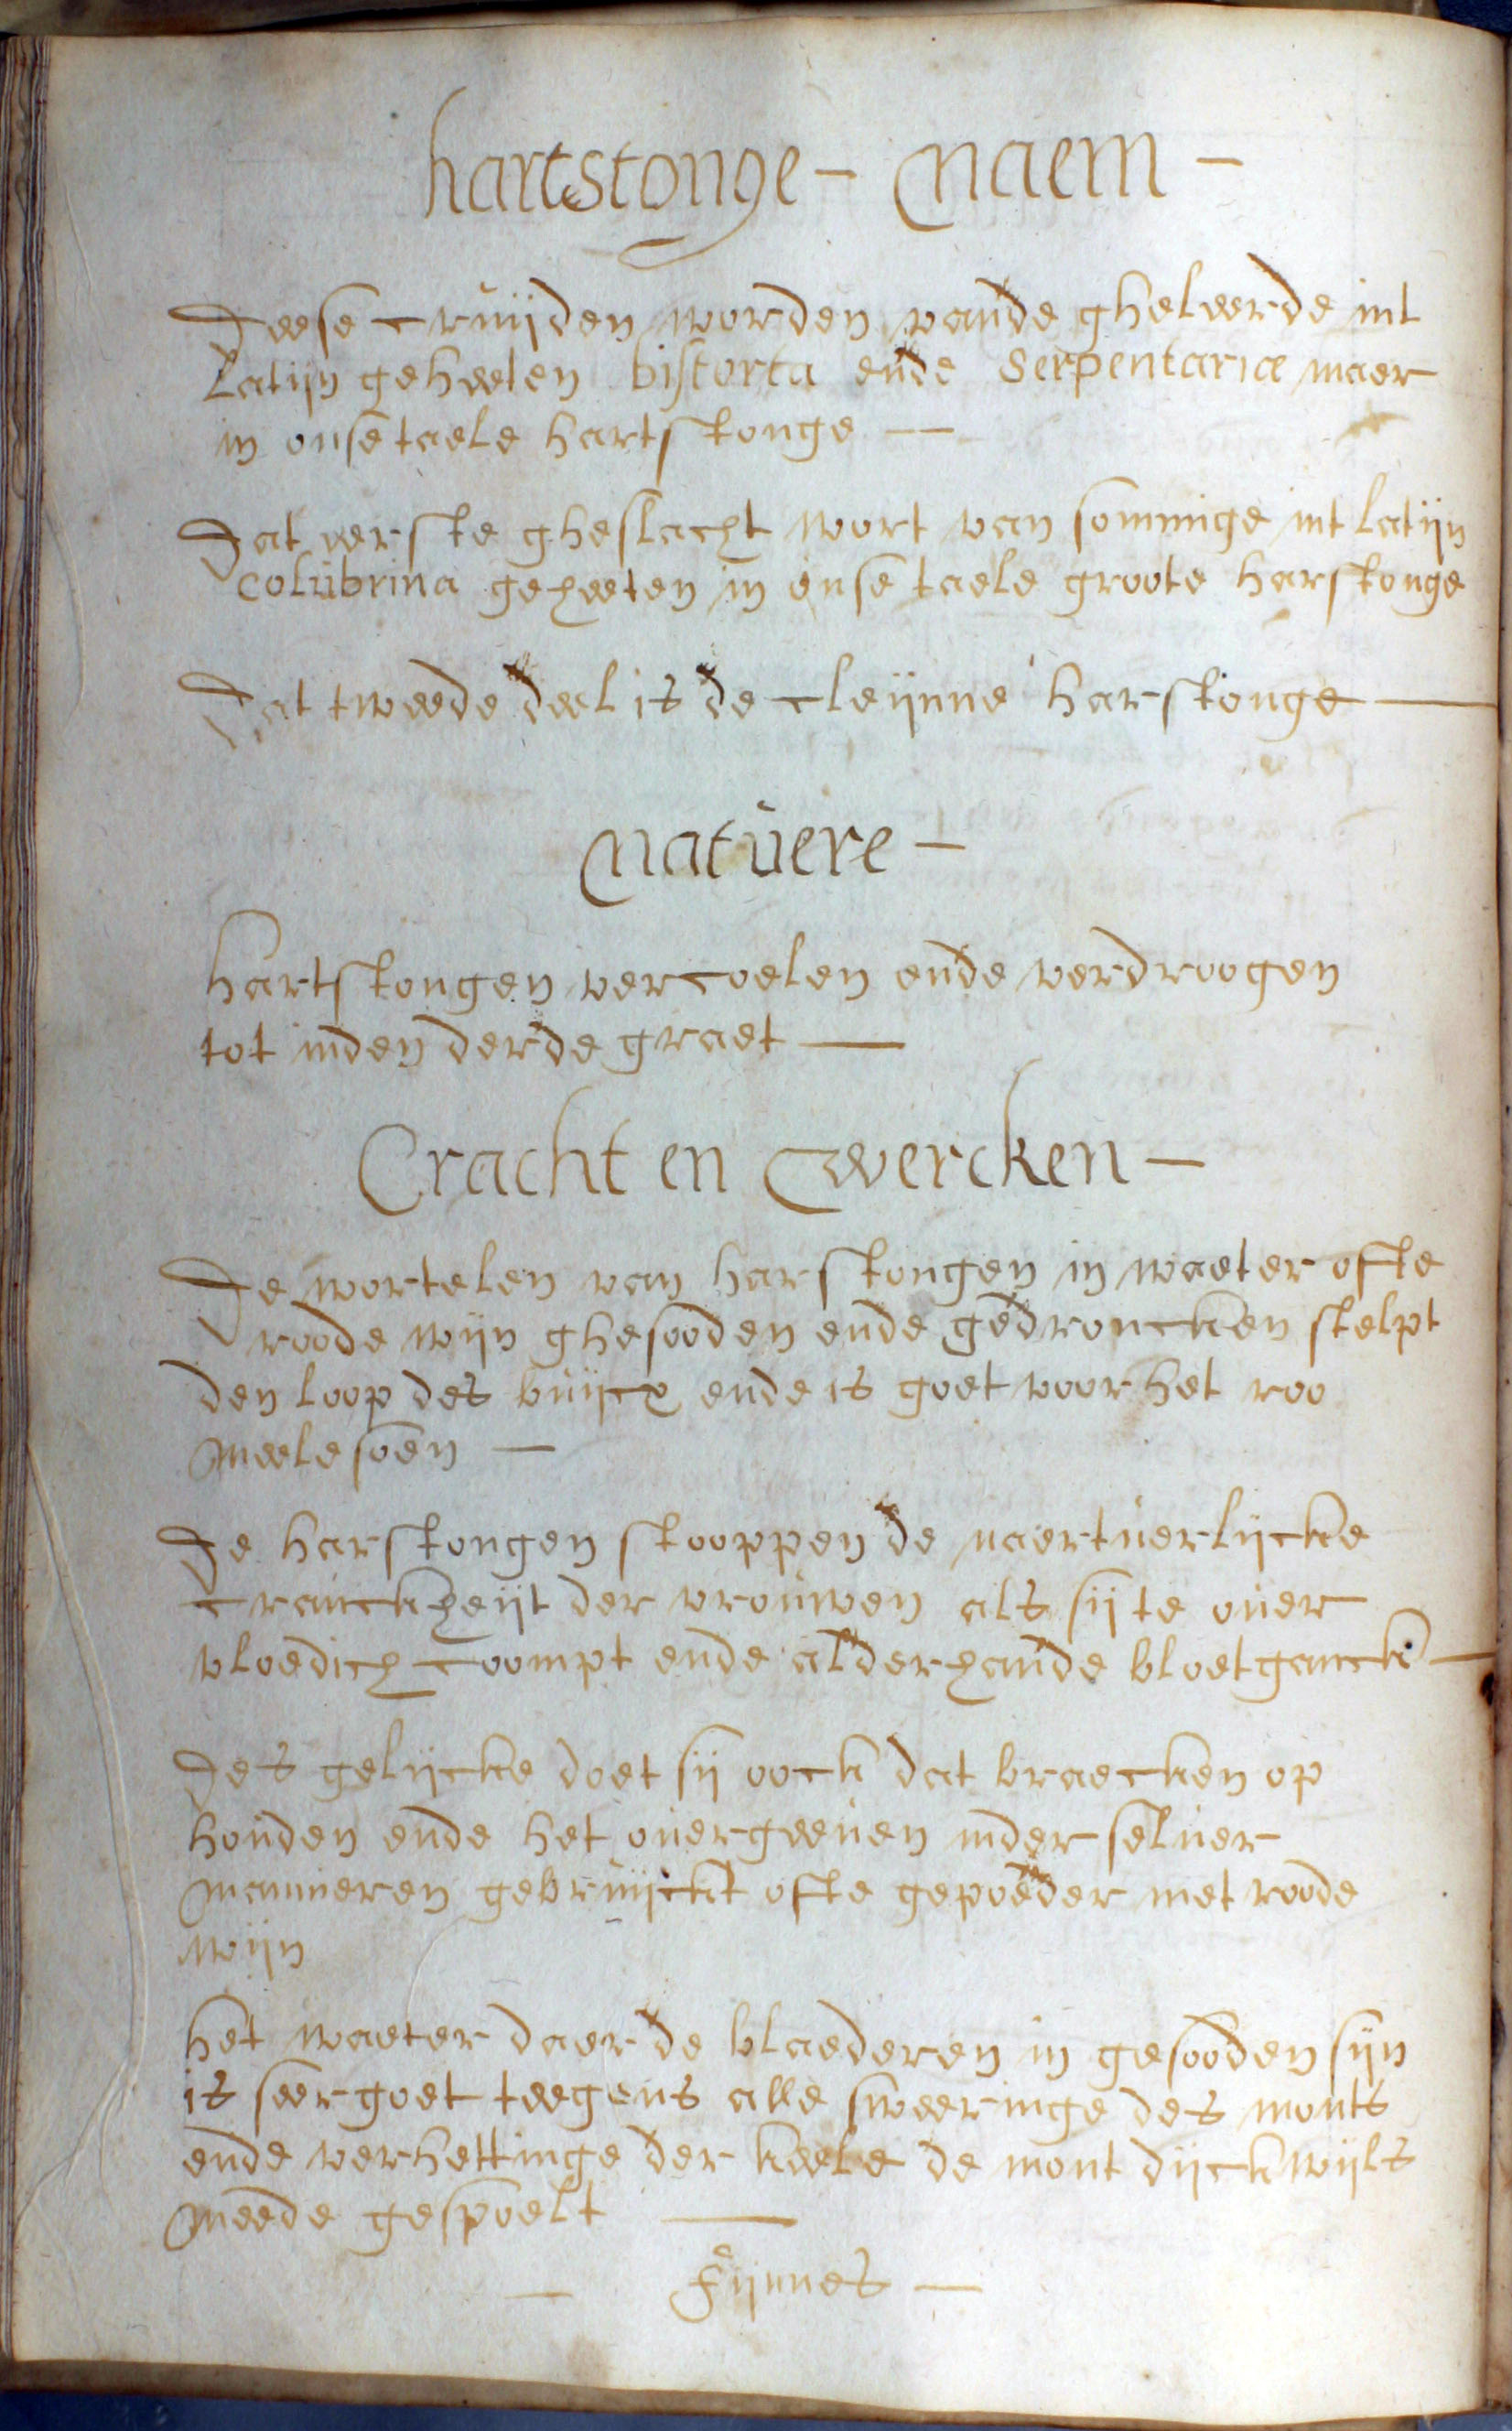 hartstonge – Naem –
Deese cruijden worden vande gheleerde int
Latijn geheeten bistorta ende Serpentariæ maer
in onse taele hartstonge —
Dat eerste gheslacht wort van sommige int latijn
Colubrina geheeten in onse taele groote harstonge
Dat tweede deel is de cleijnne harstonge —
Natuere –
hartstongen vercoelen ende verdroogen
tot inden derde graet —
Cracht en Wercken –
De wortelen van harstongen in waeter ofte
roode wijn ghesooden ende gedroncken stelpt
den loop des buijcx ende is goet voor het roo
meelesoen —
De harstongen stooppen de naertuerlijcke
cranckheijt der vrouwen als sij te ouer
vloedich coompt ende alderhande bloetganck —
Des gelijcke doet sij oock dat braecken op
houden ende het ouergeeuen inder seluer
mannieren gebruijckt ofte gepoeder met roode
wijn
het waeter daer de blaederen in gesooden sijn
is seer goet teegens alle sweeringe des monts
ende verhettinge der keele de mont dijckwijls
meede gespoelt —
— Fijnnes —